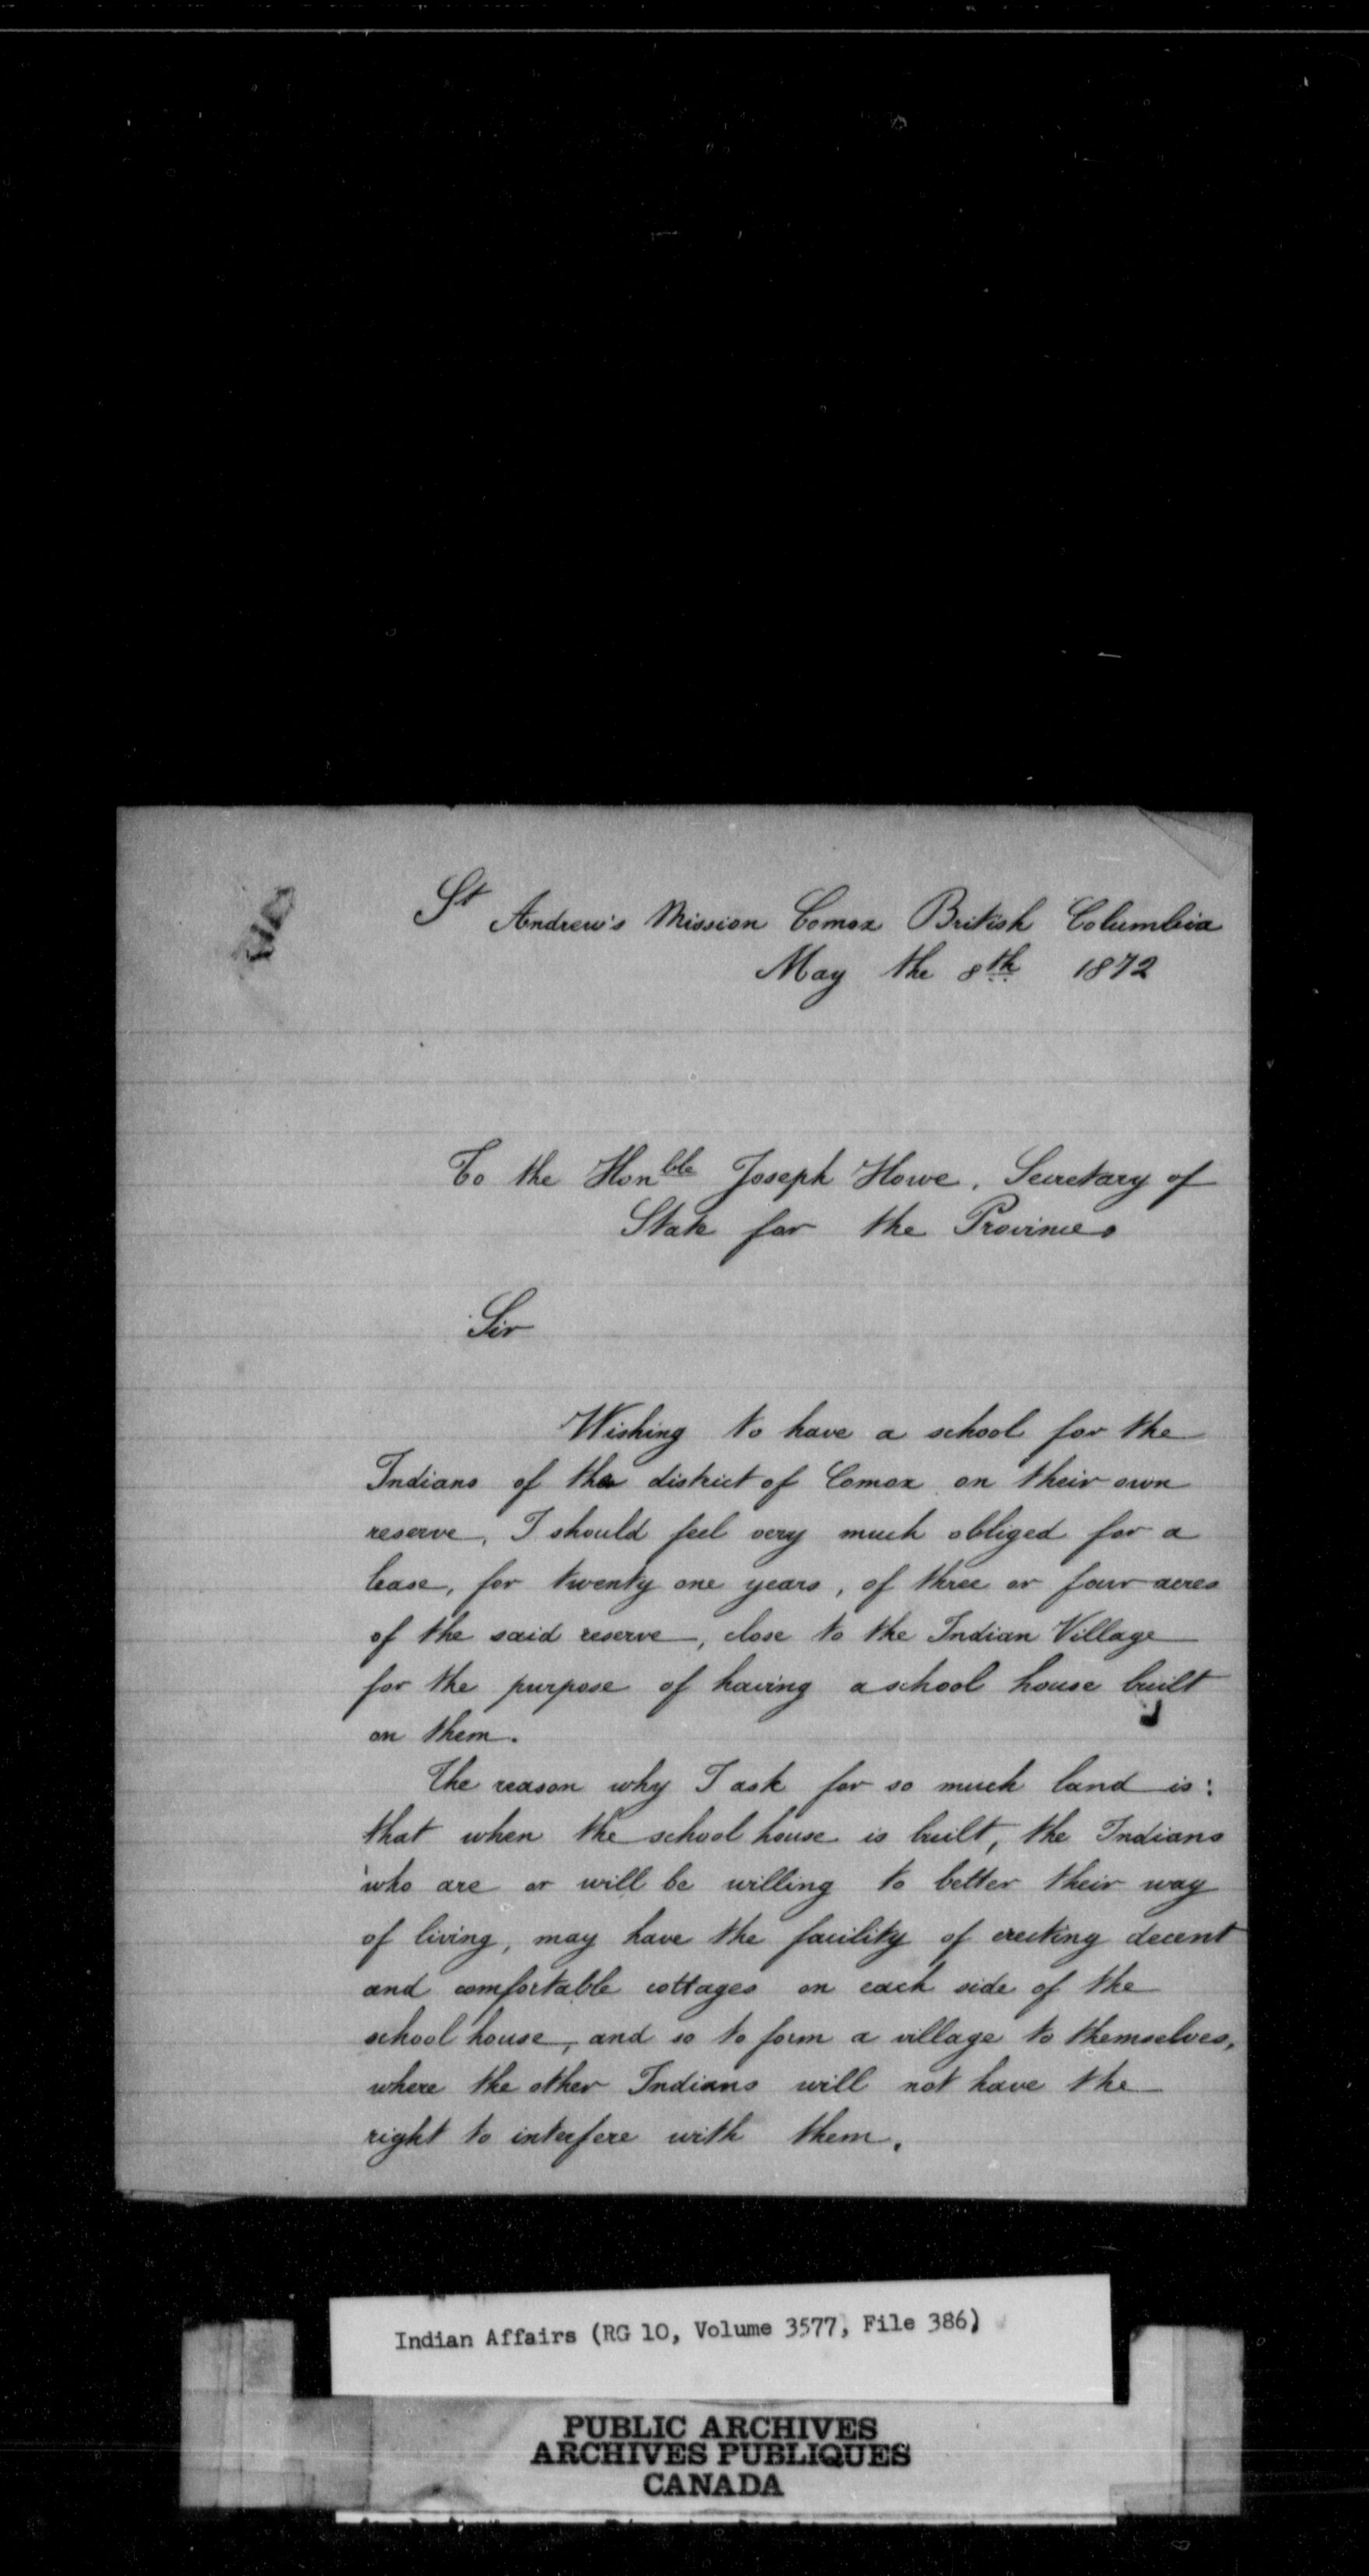 St Andrew's Mission Comox British Columbia
May the 8th 1872
To the Honble Joseph Howe, Secretary of
State for the Provinces
Sir
Wishing to have a school for the
Indians of the district of Comox on their own
reserve, I should feel very much obliged for a
lease, for twenty one years, of three or four acres
of the said reserve, close to the Indian Village
for the purpose of having a school house built
on them.
The reason why I ask for so much land is:
that when the school house is built, the Indians
who are or will be willing to better their way
of living, may have the facility of erecting decent
and comfortable cottages on each side of the
school house, and so to form a village to themselves,
where the other Indians will not have the
right to interfere with them.
Indian Affairs (RG 10, Volume 3577, File 386)
PUBLIC ARCHIVES
ARCHIVES PUBLIQUES
CANADA